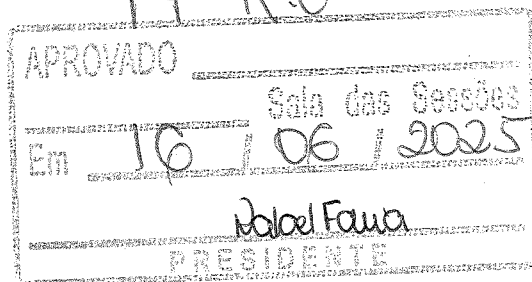 APROVADO
Sala das Sessões
Em 16 / 06 / 2025
PRESIDENTE